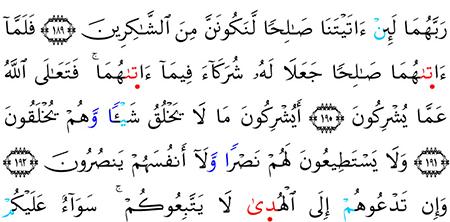 رَبَّهُمَا لَئِنْ ءَاتَيْتَنَا صَٰلِحًا لَّنَكُونَنَّ مِنَ ٱلشَّٰكِرِينَ ۝١٨٩ فَلَمَّآ
ءَاتَىٰهُمَا صَٰلِحًا جَعَلَا لَهُۥ شُرَكَآءَ فِيمَآ ءَاتَىٰهُمَا ۚ فَتَعَٰلَى ٱللَّهُ
عَمَّا يُشْرِكُونَ ۝١٩٠ أَيُشْرِكُونَ مَا لَا يَخْلُقُ شَيْـًٔا وَّهُمْ يُخْلَقُونَ
۝١٩١ وَلَا يَسْتَطِيعُونَ لَهُمْ نَصْرًا وَّلَآ أَنفُسَهُمْ يَنصُرُونَ ۝١٩٢
وَإِن تَدْعُوهُمْ إِلَى ٱلْهُدَىٰ لَا يَتَّبِعُوكُمْ ۚ سَوَآءٌ عَلَيْكُمْ